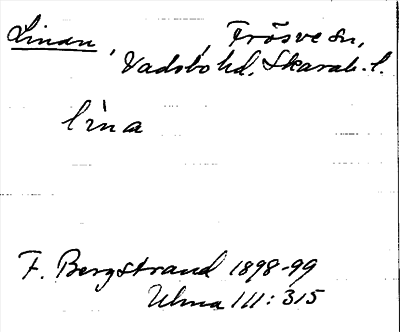 Linan, Frösve sn,
Vadsbo hd. Skarab. l.
lìna
F. Bergstrand 1898-99
Ulma 111:315